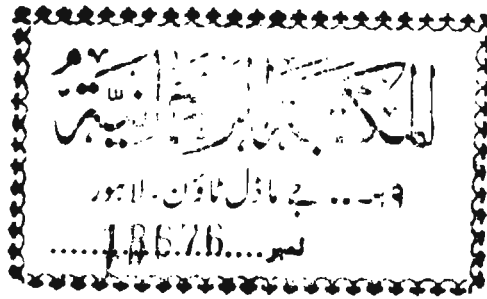 المكتبة الرحمانية
۹۹۔۔۔ جے ماڈل ٹاؤن۔ لاہور
نمبر....18676.....